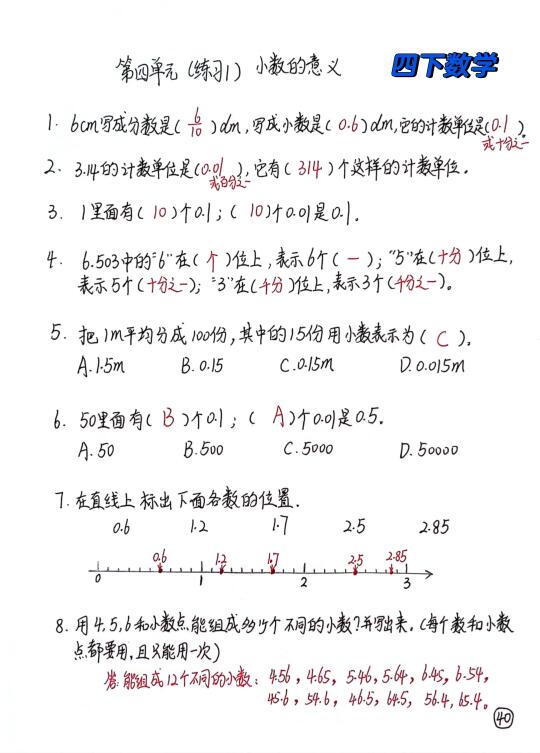 第四单元(练习1) 小数的意义 四下数学
1. 6cm写成分数是( 6/10 )dm,写成小数是( 0.6 )dm,它的计数单位是(0.1
或十分之一)。
2. 3.14的计数单位是(0.01
或百分之一),它有( 314 )个这样的计数单位。
3. 1里面有( 10 )个0.1;( 10 )个0.01是0.1.
4. 6.503中的"6"在( 个 )位上,表示6个( 一 );"5"在(十分)位上,
表示5个(十分之一);"3"在(千分)位上,表示3个(千分之一)。
5. 把1m平均分成100份,其中的15份用小数表示为( C )。
A.1.5m B. 0.15 C. 0.15m D. 0.015m
6. 50里面有( B )个0.1;( A )个0.01是0.5.
A. 50 B. 500 C. 5000 D. 50000
7. 在直线上标出下面各数的位置.
0.6 1.2 1.7 2.5 2.85
0.6 1.2 1.7 2.5 2.85
0 1 2 3
8. 用4,5,6和小数点能组成多少个不同的小数?并写出来。(每个数和小数
点都要用,且只能用一次)
答:能组成12个不同的小数:4.56,4.65,5.46,5.64,6.45,6.54,
45.6,54.6,46.5,64.5,56.4,65.4。
40